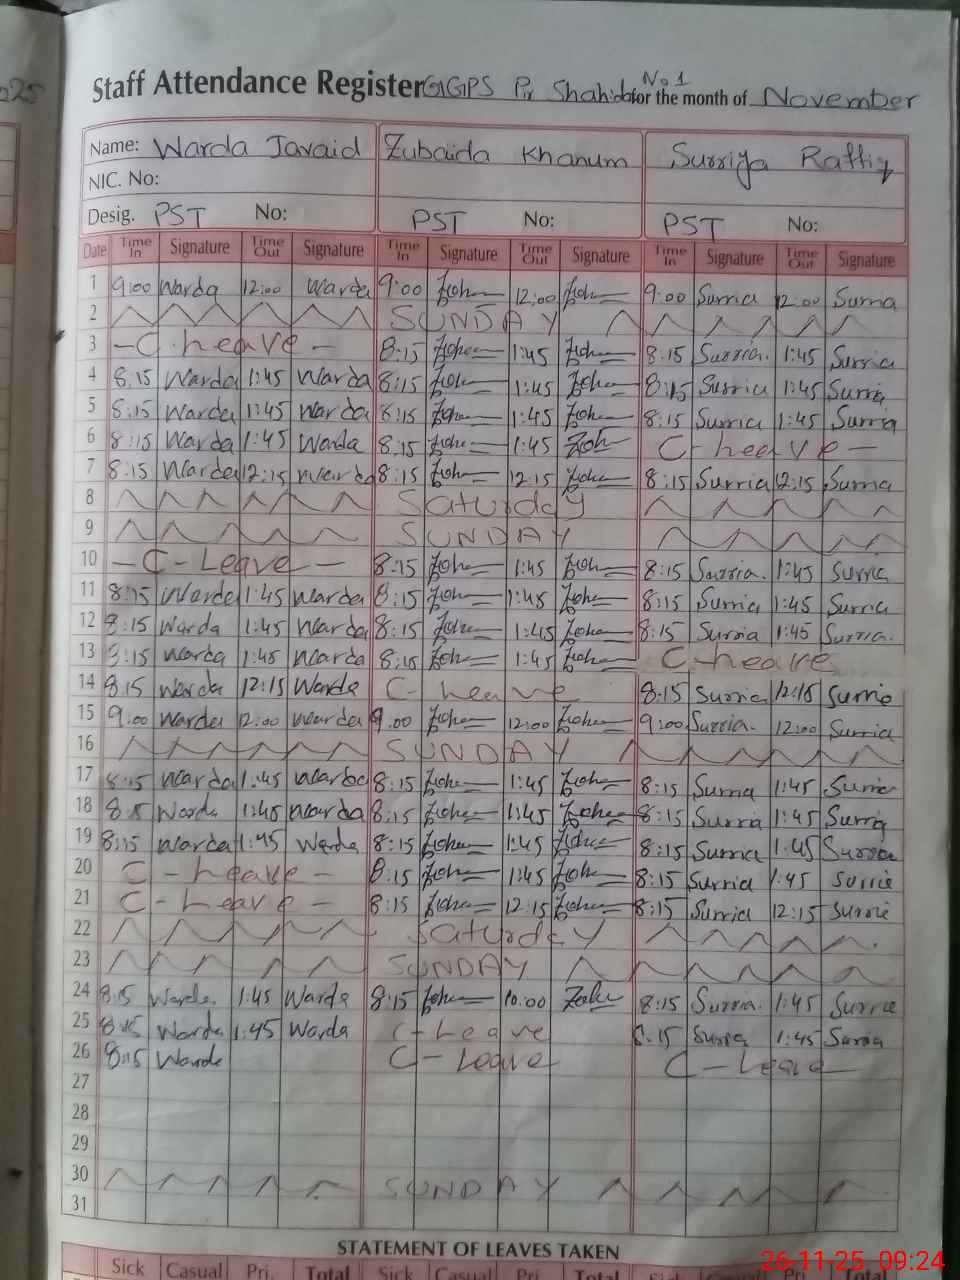 025
Staff Attendance Register GGPS Pir Shahida No 1 for the month of November
Name: Warda Javaid Zubaida Khanum Surriya Raffiq
NIC. No:
Desig. PST No: PST No: PST No:
Date Time In Signature Time Out Signature Time In Signature Time Out Signature Time In Signature Time Out Signature
1 9:00 Warda 12:00 Warda 9:00 12:00 9:00 Surria 12:00 Surria
2 SUNDAY
3 - C. Leave - 8:15 1:45 8:15 Surria. 1:45 Surria
4 8:15 Warda 1:45 Warda 8:15 1:45 8:15 Surria 1:45 Surria
5 8:15 Warda 1:45 Warda 8:15 1:45 8:15 Surria 1:45 Surria
6 8:15 Warda 1:45 Warda 8:15 1:45 C - Leave -
7 8:15 Warda 12:15 Warda 8:15 12:15 8:15 Surria 12:15 Surria
8 Saturday
9 SUNDAY
10 - C - Leave - 8:15 1:45 8:15 Surria. 1:45 Surria
11 8:15 Warda 1:45 Warda 8:15 1:45 8:15 Surria 1:45 Surria
12 8:15 Warda 1:45 Warda 8:15 1:45 8:15 Surria 1:45 Surria.
13 8:15 Warda 1:45 Warda 8:15 1:45 C - Leave
14 8:15 Warda 12:15 Warda C - Leave 8:15 Surria 12:15 Surria
15 9:00 Warda 12:00 Warda 9:00 12:00 9:00 Surria. 12:00 Surria
16 SUNDAY
17 8:15 Warda 1:45 Warda 8:15 1:45 8:15 Surria 1:45 Surria
18 8:15 Warda 1:45 Warda 8:15 1:45 8:15 Surria 1:45 Surria
19 8:15 Warda 1:45 Warda 8:15 1:45 8:15 Surria 1:45 Surria
20 C - Leave - 8:15 1:45 8:15 Surria 1:45 Surria
21 C - Leave - 8:15 12:15 8:15 Surria 12:15 Surria
22 Saturday
23 SUNDAY
24 8:15 Warda. 1:45 Warda 8:15 10:00 8:15 Surria. 1:45 Surria
25 8:15 Warda 1:45 Warda C - Leave 8:15 Surria 1:45 Surria
26 8:15 Warda C - Leave C - Leave
27
28
29
30 SUNDAY
31
STATEMENT OF LEAVES TAKEN
Sick Casual Pri. Total Sick Casual Pri. Total Sick Casual Pri. Total
26-11-25 09:24